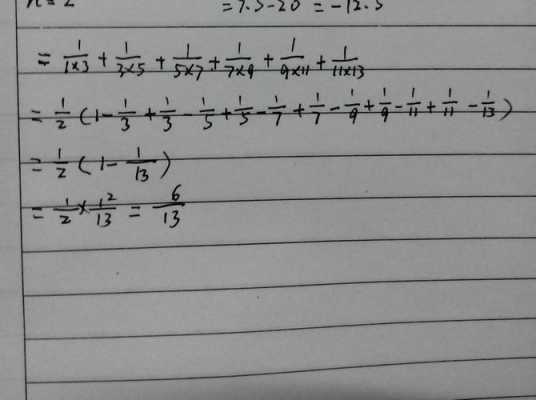 n = 2 = 7.5 - 20 = -12.5
= 1/(1×3) + 1/(3×5) + 1/(5×7) + 1/(7×9) + 1/(9×11) + 1/(11×13)
= 1/2 (1 - 1/3 + 1/3 - 1/5 + 1/5 - 1/7 + 1/7 - 1/9 + 1/9 - 1/11 + 1/11 - 1/13)
= 1/2 (1 - 1/13)
= 1/2 × 12/13 = 6/13